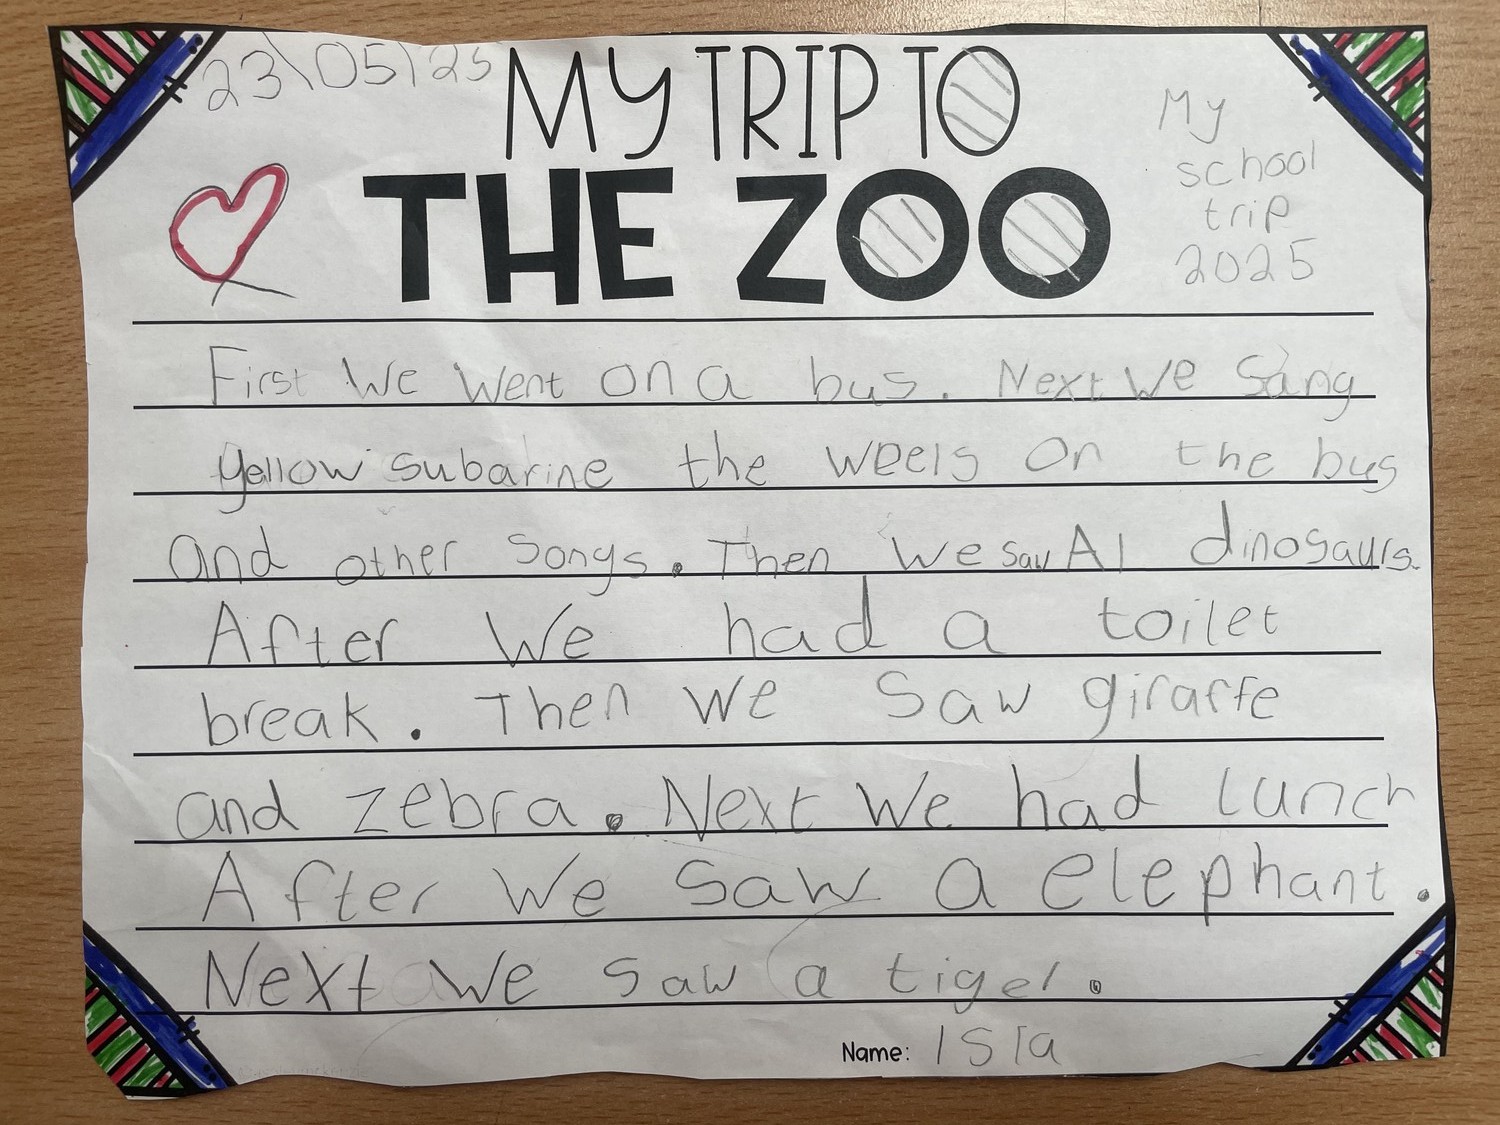 23\05\25
MY TRIP TO
THE ZOO
My
school
trip
2025
First We Went on a bus. Next We Sang
yellow subarine the weels on the bus
and other songs. Then We saw A1 dinosaurs.
After We had a toilet
break. Then we Saw giraffe
and zebra. Next We had lunch
After We Saw a elephant.
Next We saw a tiger.
Name: Isla